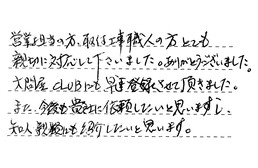 営業担当の方、取付工事職人の方とても
親切に対応して下さいました。ありがとうございました。
大問屋CLUBにも早速登録させて頂きました。
また、今後も貴社に依頼したいと思いますし、
知人親類にも紹介したいと思います。